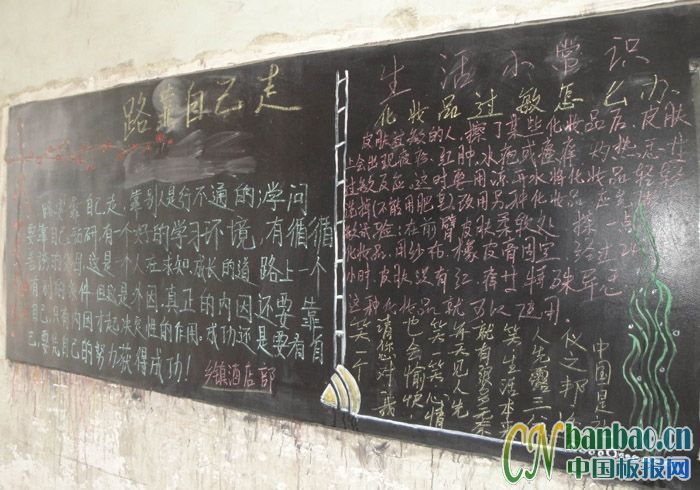 路靠自己走
路要靠自己走,靠别人是行不通的,学问
要靠自己钻研有一个好的学习环境 有循循
善诱的 这是一个人在求知.成长的道 路上一个
有利的条件 但这是外因,真正的内因还要 靠
自己,只有内因才起决定性的作用。成功还是要看自
己,要凭自己的努力获得成功!
乡镇酒店部
生活小常识
化妆品过敏怎么办
皮肤过敏的人,擦了某些化妆品后,皮肤
上会出现疲疹,红肿,水疱或瘙痒 灼热 等
过敏反应。这时要用流动水将化妆品轻轻
洗掉(不能用肥皂)改用另种化妆品 应先
做试验:在前臂皮肤柔软处 擦一点
化妆品,用纱布、橡皮膏固定 经过24
小时,皮肤没有红,痒等特殊异
这种化妆品就可以使用.
中国是
仪之邦
人先露三分
笑,生活本来
就有很多无奈
每天见人先
笑一笑心情
也会愉快
请您对我
笑一个
CN banbao.cn
中国板报网